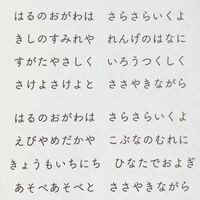 はるのおがわは　さらさらいくよ
きしのすみれや　れんげのはなに
すがたやさしく　いろうつくしく
さけよさけよと　ささやきながら
はるのおがわは　さらさらいくよ
えびやめだかや　こぶなのむれに
きょうもいちにち　ひなたでおよぎ
あそべあそべと　ささやきながら